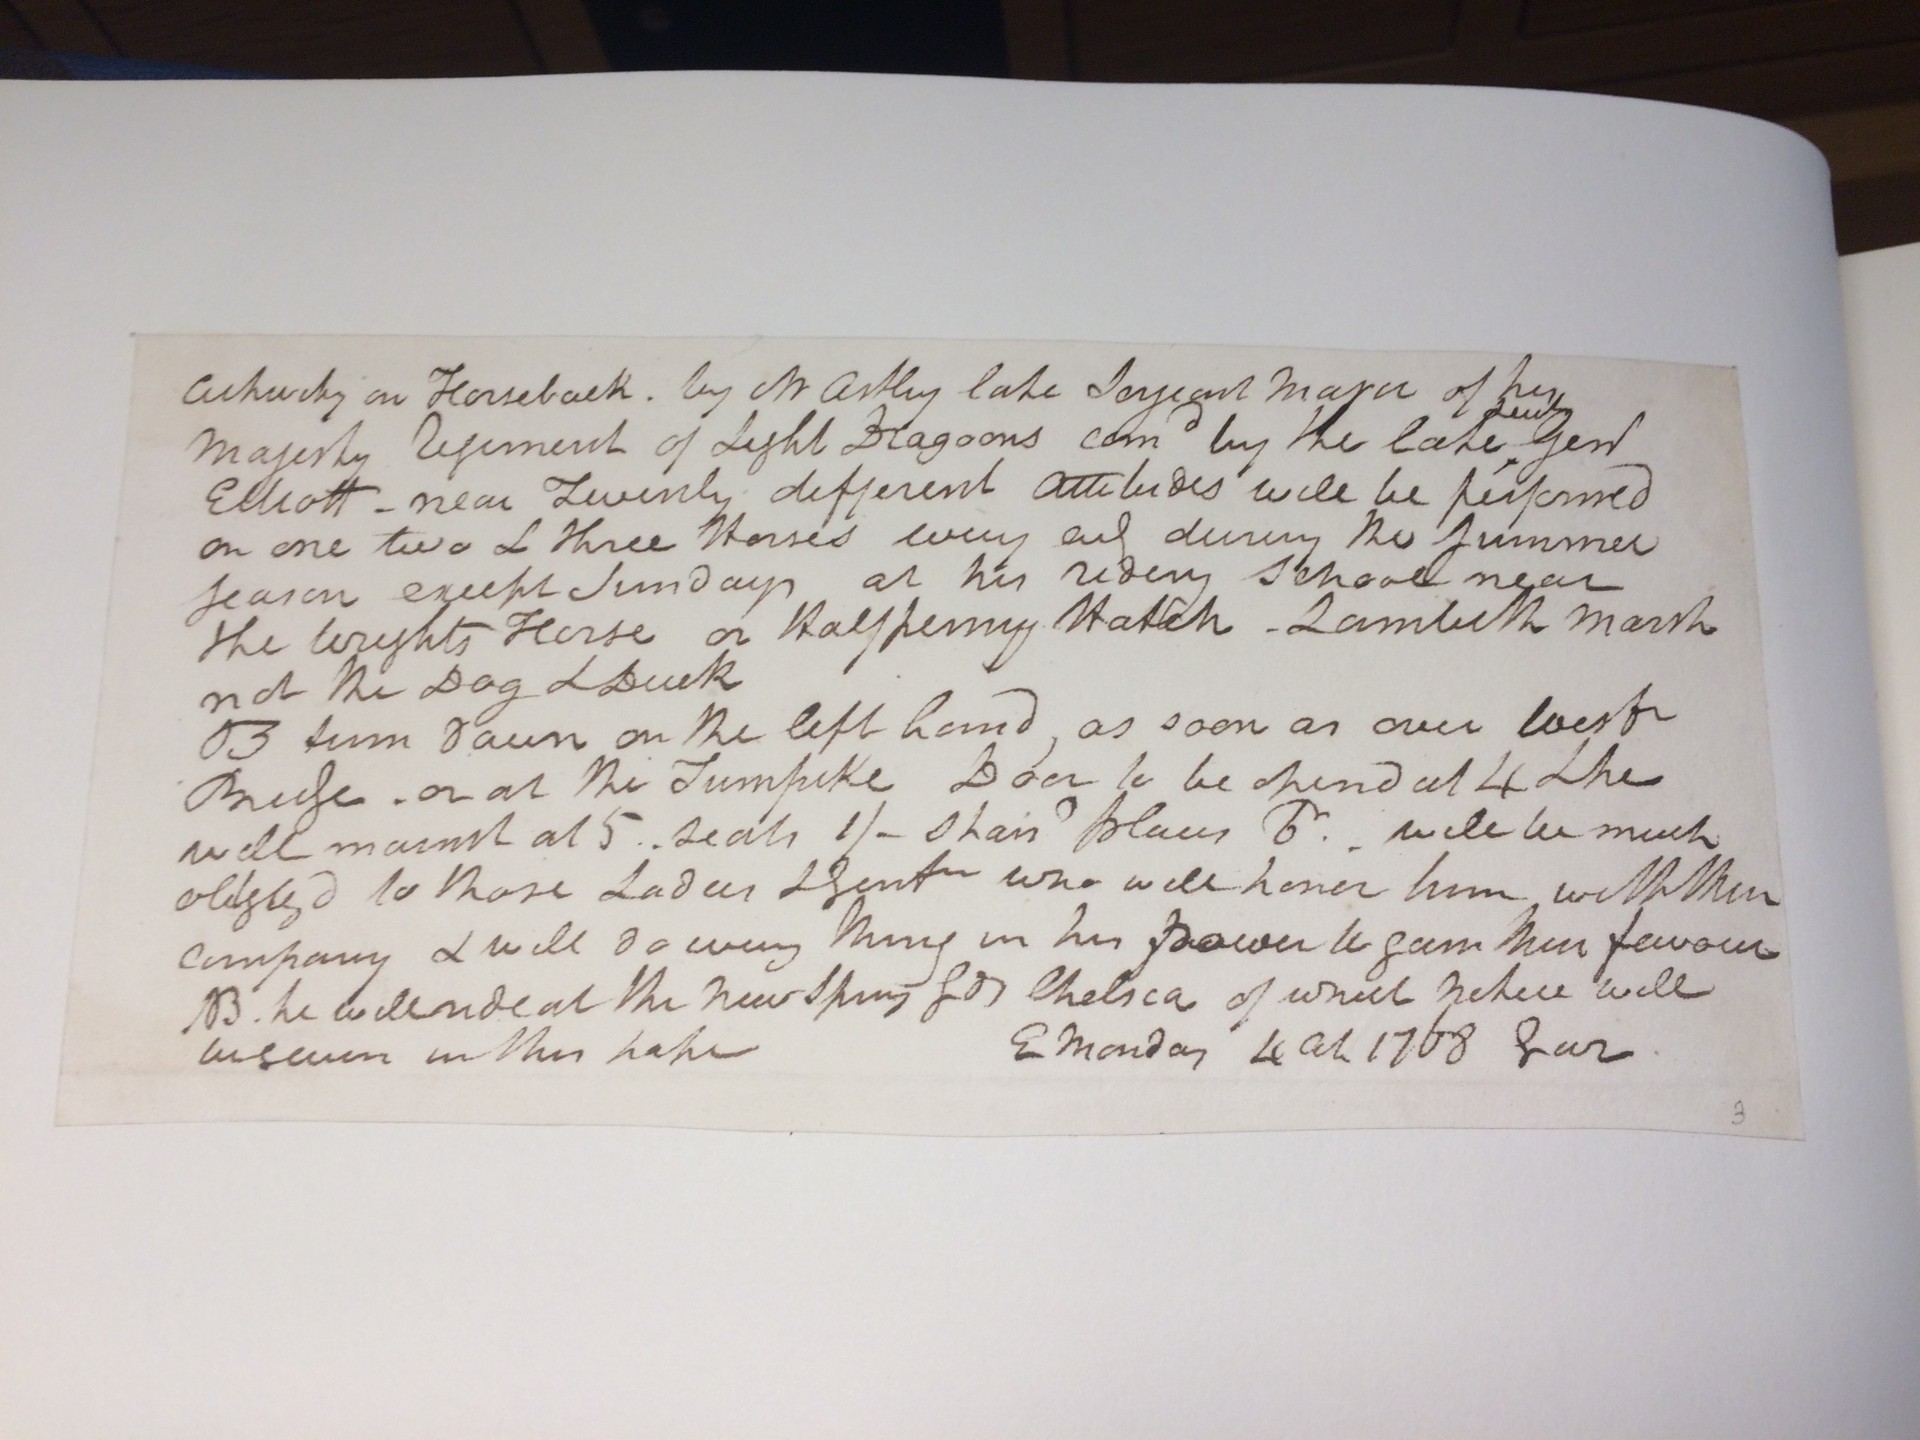 Activity on Horseback. by Mr Astley late Serjeant Major of his
Majesty Regiment of Light Dragoons comd by the late Lieut Genl
Elliott - near Twenty different Attitudes will be performed
on one two & three Horses every evg during the Summer
season except Sundays at his riding School near
the Wrights Horse or Halfpenny Hatch - Lambeth Marsh
not the Dog & Duck
NB turn down on the left hand, as soon as over Westr
Bridge - or at the Turnpike Door to be opend at 4 & he
will mount at 5 .. seats 1/- Stand places 6d. - will be much
obliged to those Ladies & Gentn who will honor him with their
company & will do every thing in his power to gain their favour
NB. he will ride at the New Spring Gds Chelsea of which notice will
be given in this paper
E Monday 4 at 1768 Gaz
3